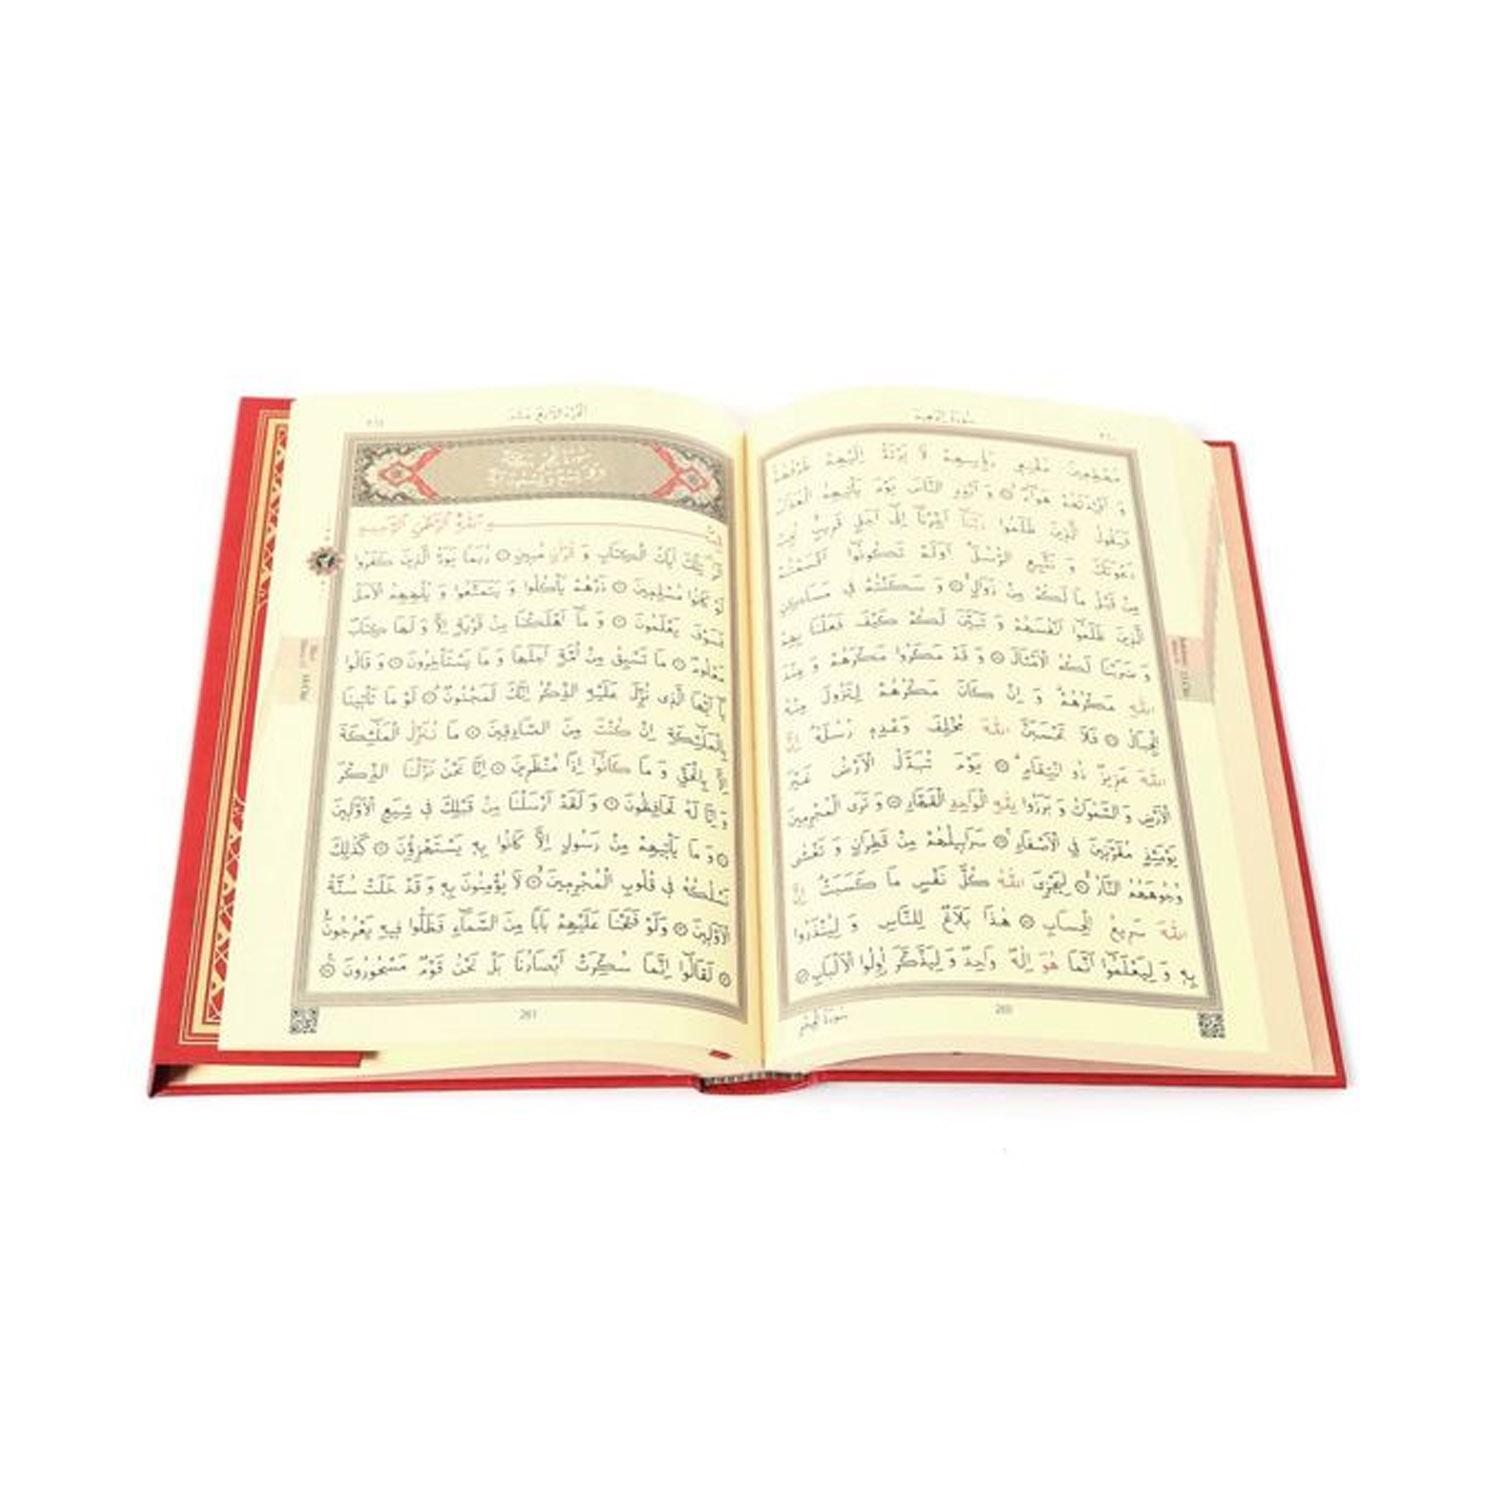 سُورَةُ اِبْرٰهِيمَ
مُهْطِعِينَ مُقْنِعِي رُؤُسِهِمْ لَا يَرْتَدُّ اِلَيْهِمْ طَرْفُهُمْ
وَ اَفْـِٔدَتُهُمْ هَوَٓاءٌ ۞ وَ اَنْذِرِ النَّاسَ يَوْمَ يَأْتِيهِمُ الْعَذَابُ
فَيَقُولُ الَّذِينَ ظَلَمُوا رَبَّنَٓا اَخِّرْنَٓا اِلٰٓى اَجَلٍ قَرِيبٍ نُجِبْ
دَعْوَتَكَ وَ نَتَّبِعِ الرُّسُلَ اَوَلَمْ تَكُونُٓوا اَقْسَمْتُمْ
مِنْ قَبْلُ مَا لَكُمْ مِنْ زَوَالٍ ۞ وَ سَكَنْتُمْ فِي مَسَاكِنِ
الَّذِينَ ظَلَمُٓوا اَنْفُسَهُمْ وَ تَبَيَّنَ لَكُمْ كَيْفَ فَعَلْنَا بِهِمْ
وَ ضَرَبْنَا لَكُمُ الْاَمْثَالَ ۞ وَ قَدْ مَكَرُوا مَكْرَهُمْ وَ عِنْدَ
اللّٰهِ مَكْرُهُمْ وَ اِنْ كَانَ مَكْرُهُمْ لِتَزُولَ مِنْهُ
الْجِبَالُ ۞ فَلَا تَحْسَبَنَّ اللّٰهَ مُخْلِفَ وَعْدِهِ رُسُلَهُ اِنَّ
اللّٰهَ عَزِيزٌ ذُو انْتِقَامٍ ۞ يَوْمَ تُبَدَّلُ الْاَرْضُ غَيْرَ
الْاَرْضِ وَ السَّمٰوَاتُ وَ بَرَزُوا لِلّٰهِ الْوَاحِدِ الْقَهَّارِ ۞ وَ تَرَى الْمُجْرِمِينَ
يَوْمَئِذٍ مُقَرَّنِينَ فِي الْاَصْفَادِ ۞ سَرَابِيلُهُمْ مِنْ قَطِرَانٍ وَ تَغْشٰى
وُجُوهَهُمُ النَّارُ ۞ لِيَجْزِيَ اللّٰهُ كُلَّ نَفْسٍ مَا كَسَبَتْ اِنَّ
اللّٰهَ سَرِيعُ الْحِسَابِ ۞ هٰذَا بَلَاغٌ لِلنَّاسِ وَ لِيُنْذَرُوا
بِهِ وَ لِيَعْلَمُٓوا اَنَّمَا هُوَ اِلٰهٌ وَاحِدٌ وَ لِيَذَّكَّرَ اُولُوا الْاَلْبَابِ ۞
260
سُورَةُ الْحِجْرِ
اَلْجُزْءُ الرَّابِعَ عَشَرَ
بِسْمِ اللّٰهِ الرَّحْمٰنِ الرَّحِيمِ
الٓرٰ تِلْكَ اٰيَاتُ الْكِتَابِ وَ قُرْاٰنٍ مُبِينٍ ۞ رُبَمَا يَوَدُّ الَّذِينَ كَفَرُوا
لَوْ كَانُوا مُسْلِمِينَ ۞ ذَرْهُمْ يَأْكُلُوا وَ يَتَمَتَّعُوا وَ يُلْهِهِمُ الْاَمَلُ
فَسَوْفَ يَعْلَمُونَ ۞ وَ مَٓا اَهْلَكْنَا مِنْ قَرْيَةٍ اِلَّا وَ لَهَا كِتَابٌ
مَعْلُومٌ ۞ مَا تَسْبِقُ مِنْ اُمَّةٍ اَجَلَهَا وَ مَا يَسْتَأْخِرُونَ ۞ وَ قَالُوا
يَٓا اَيُّهَا الَّذِي نُزِّلَ عَلَيْهِ الذِّكْرُ اِنَّكَ لَمَجْنُونٌ ۞ لَوْ مَا تَأْتِينَا
بِالْمَلٰٓئِكَةِ اِنْ كُنْتَ مِنَ الصَّادِقِينَ ۞ مَا نُنَزِّلُ الْمَلٰٓئِكَةَ
اِلَّا بِالْحَقِّ وَ مَا كَانُٓوا اِذًا مُنْظَرِينَ ۞ اِنَّا نَحْنُ نَزَّلْنَا الذِّكْرَ
وَ اِنَّا لَهُ لَحَافِظُونَ ۞ وَ لَقَدْ اَرْسَلْنَا مِنْ قَبْلِكَ فِي شِيَعِ الْاَوَّلِينَ
۞ وَ مَا يَأْتِيهِمْ مِنْ رَسُولٍ اِلَّا كَانُوا بِهِ يَسْتَهْزِؤُنَ ۞ كَذٰلِكَ
نَسْلُكُهُ فِي قُلُوبِ الْمُجْرِمِينَ ۞ لَا يُؤْمِنُونَ بِهِ وَ قَدْ خَلَتْ سُنَّةُ
الْاَوَّلِينَ ۞ وَلَوْ فَتَحْنَا عَلَيْهِمْ بَابًا مِنَ السَّمَٓاءِ فَظَلُّوا فِيهِ يَعْرُجُونَ
۞ لَقَالُٓوا اِنَّمَا سُكِّرَتْ اَبْصَارُنَا بَلْ نَحْنُ قَوْمٌ مَسْحُورُونَ ۞
261